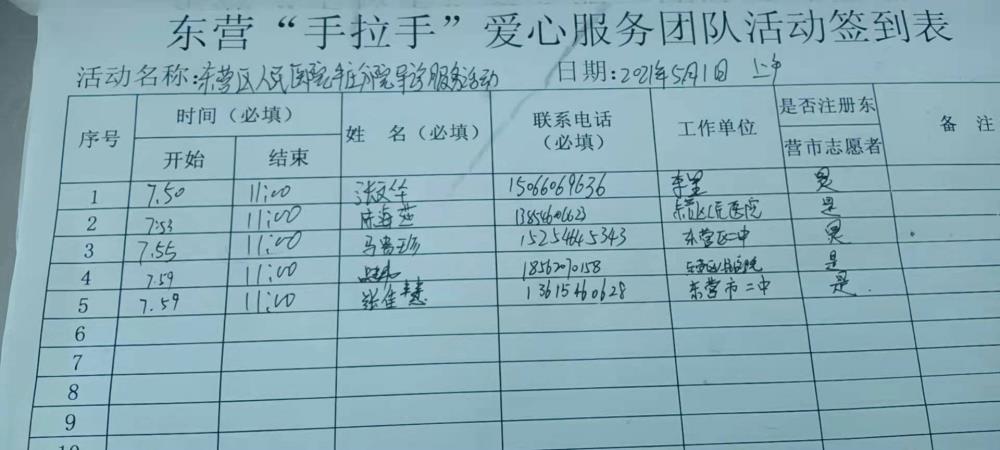 东营“手拉手”爱心服务团队活动签到表
活动名称:东营区人民医院 分院导诊服务活动 日期:2021年5月1日 上午
序号 时间（必填） 姓 名（必填） 联系电话（必填） 工作单位 是否注册东营市志愿者 备 注
开始 结束
1 7.50 11:00 张文华 15066069636 是
2 7:53 11:00 海燕 是
3 7.55 11:00 马 15254645343 东营区二中 是
4 7.59 11:00 18562070158 是
5 7.59 11:00 张佳慧 13615460628 东营市二中 是.
6
7
8
9
10